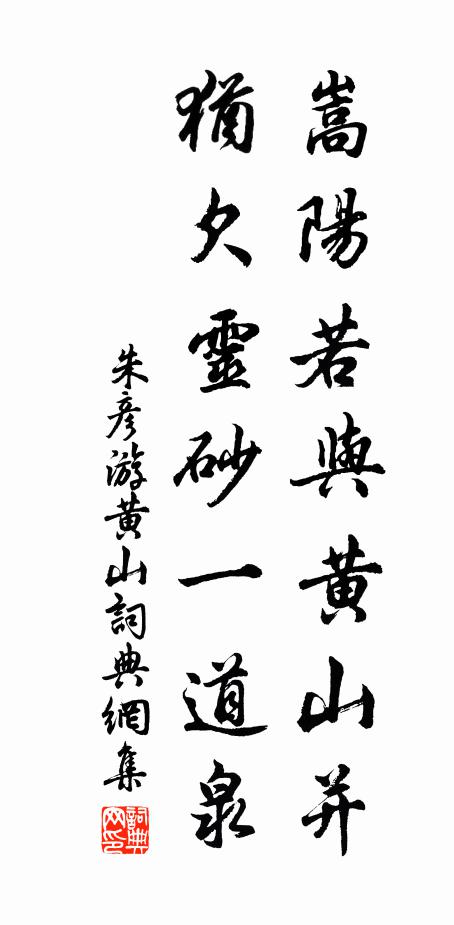 嵩陽若與黃山并
猶欠靈砂一道泉
朱彥游黃山詞典網集
詞典网印